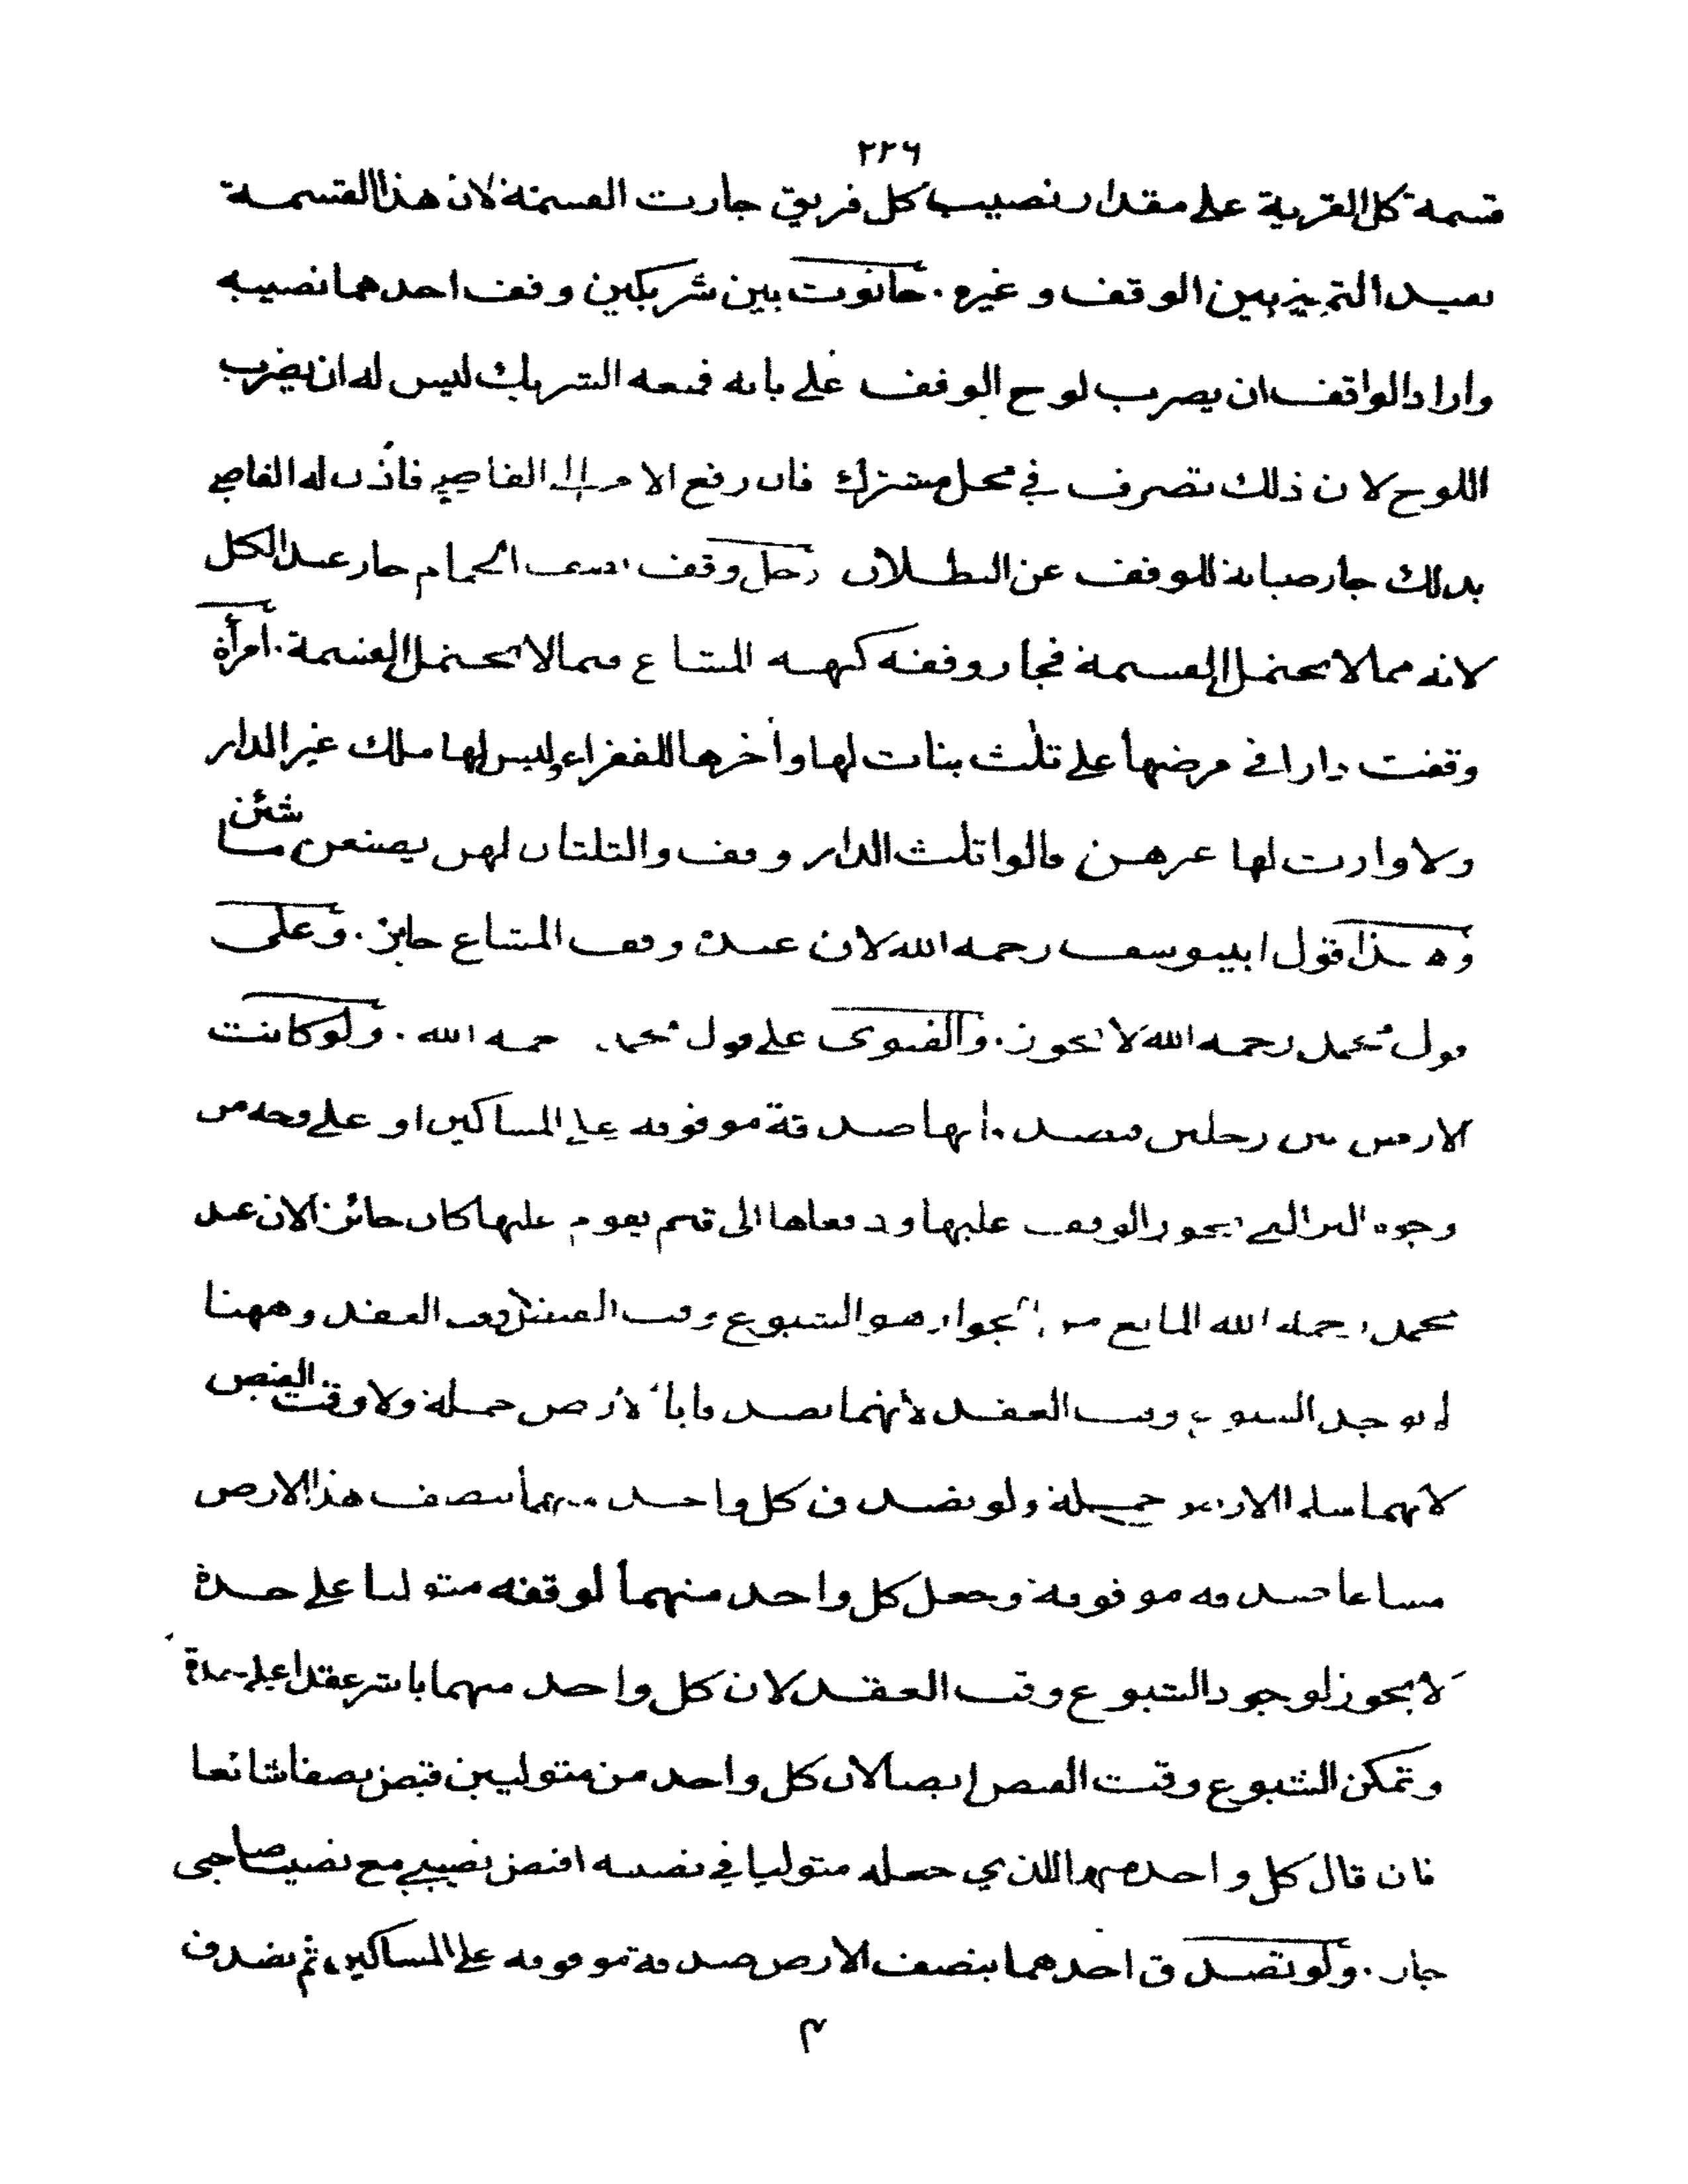 ٢٢٦
قسمة كل القرية على مقدار نصيب كل فريق جازت القسمة لان هذا القسمة
تفيد التمييز بين الوقف و غيره . حانوت بين شريكين وقف احدهما نصيبه
واراد الواقف ان يضرب لوح الوقف على بابه فمنعه الشريك ليس له ان يضرب
اللوح لا ن ذلك تصرف في محل مشترك فان رفع الامر الى القاضي فاذن له القاضي
بذلك جاز صيانة للوقف عن البطلان رجل وقف الحمام جاز عند الكل
لانه مما لا يحتمل القسمة فجاز وقفه كهبه المشاع فيما لا يحتمل القسمة . امرأة
وقفت دارا في مرضها على ثلث بنات لها وأخرها للفقراء وليس لها ملك غير الدار
ولا وارث لها غيرهن قالوا ثلث الدار وقف والثلثان لهن يصنعن ما شئن
وهذا قول ابي يوسف رحمه الله لان عنده وقف المشاع جايز . وعلى
قول محمد رحمه الله لا يجوز . والفتوى على قول محمد رحمه الله . ولو كانت
الارض بين رجلين فتصدقا بها صدقة موقوفه على المساكين او على وجه من
وجوه البر التي يجوز الوقف عليها ودفعاها الى قيم يقوم عليها كان جائزا لان عند
محمد رحمه الله المانع من الجواز هو الشيوع وقت القبض لا وقت العقد وههنا
لم يوجد الشيوع وقت العقد لانهما تصدقا بالارض جملة ولا وقت القبض
لانهما سلما الارض جملة ولو تصدق كل واحد منهما بنصف هذا الارض
مشاعا صدقه موقوفة وجعل كل واحد منهما لوقفه متوليا على حدة
لا يجوز لوجود الشيوع وقت العقد لان كل واحد منهما باشر عقدا على حدة
وتمكن الشيوع وقت القبض ايضا لان كل واحد من متوليين قبض نصفا شائعا
فان قال كل واحد منهما للذي جعله متوليا في نصيبه اقبض نصيبي مع نصيب صاحبى
جاز . ولو تصدق احدهما بنصف الارض صدقة موقوفه على المساكين ثم تصدق
م